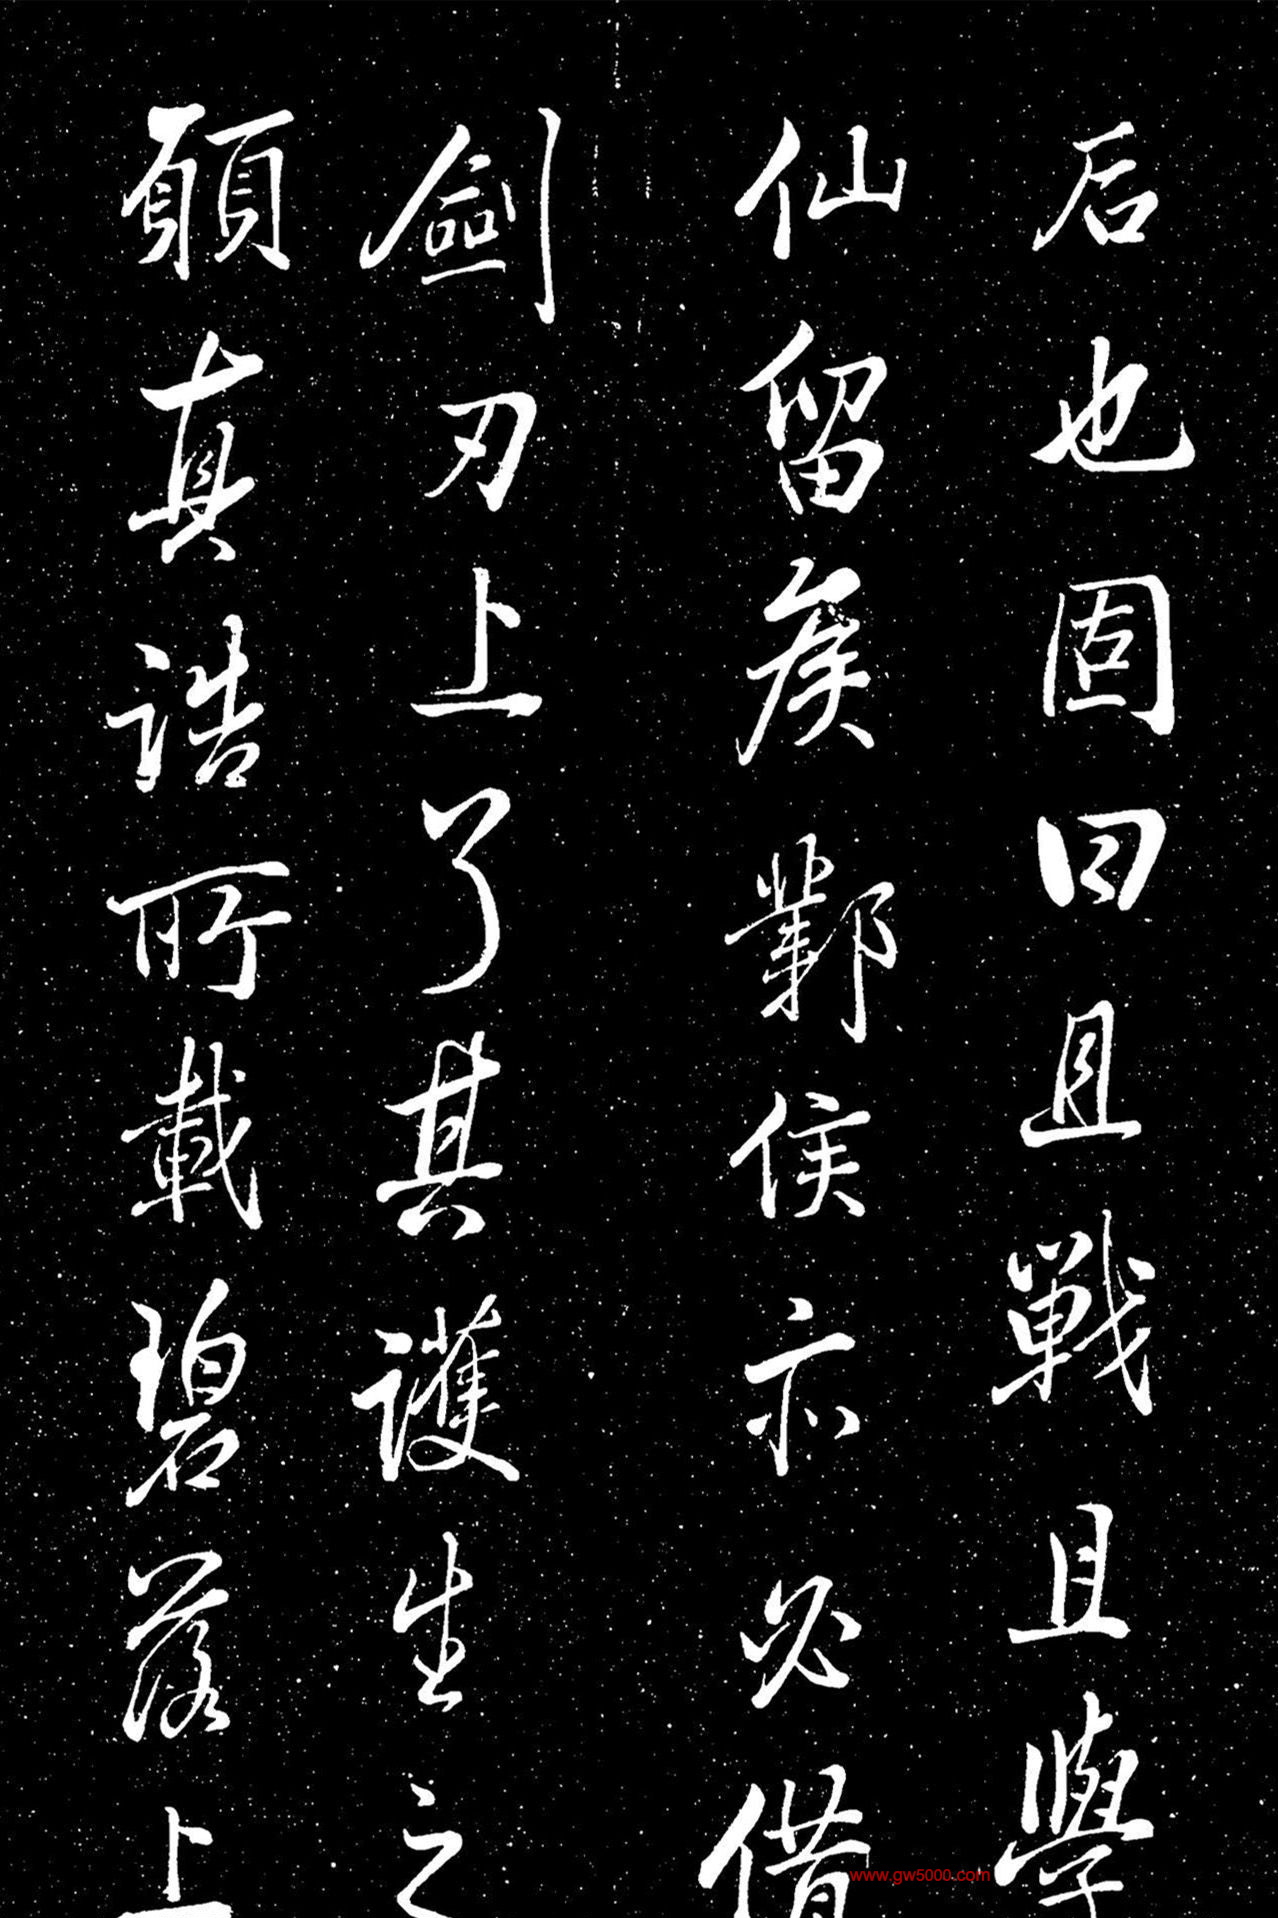 后也固曰且戰且學
仙留矦酇侯亦必借
劍刃上了其護生之
願真誥所載碧落上
www.gw5000.com